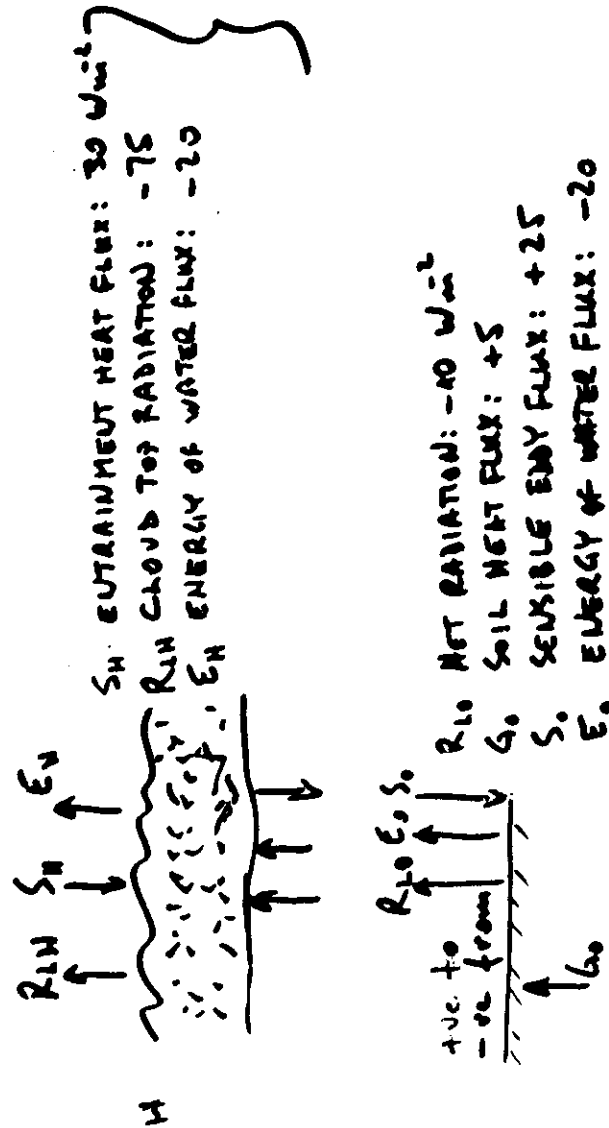 R_LH S_H E_H
H
S_H ENTRAINMENT HEAT FLUX: 30 Wm⁻²
R_LH CLOUD TOP RADIATION: -75
E_H ENERGY OF WATER FLUX: -20
R_L0 E_0 S_0
+ve to
-ve from
G_0
R_L0 NET RADIATION: -10 Wm⁻²
G_0 SOIL HEAT FLUX: +5
S_0 SENSIBLE EDDY FLUX: +25
E_0 ENERGY OF WATER FLUX: -20